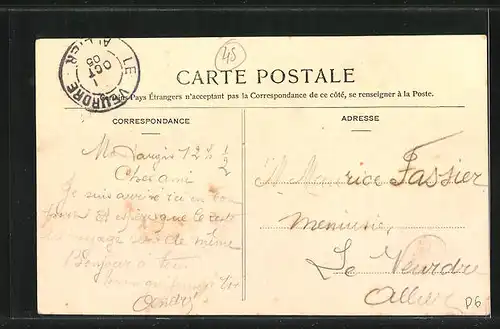 45
CARTE POSTALE
Pays Étrangers n'acceptant pas la Correspondance de ce côté, se renseigner à la Poste.
LE VEURDRE
ALLIER
1
OCT
05
CORRESPONDANCE
Montargis 12h 1/2
Cher ami
Je suis arrivé ici en bon
et que le reste
du voyage de même
Bonjour à tous
André
ADRESSE
Maurice Fassier
Menuisier
Le Veurdre
Allier
D6